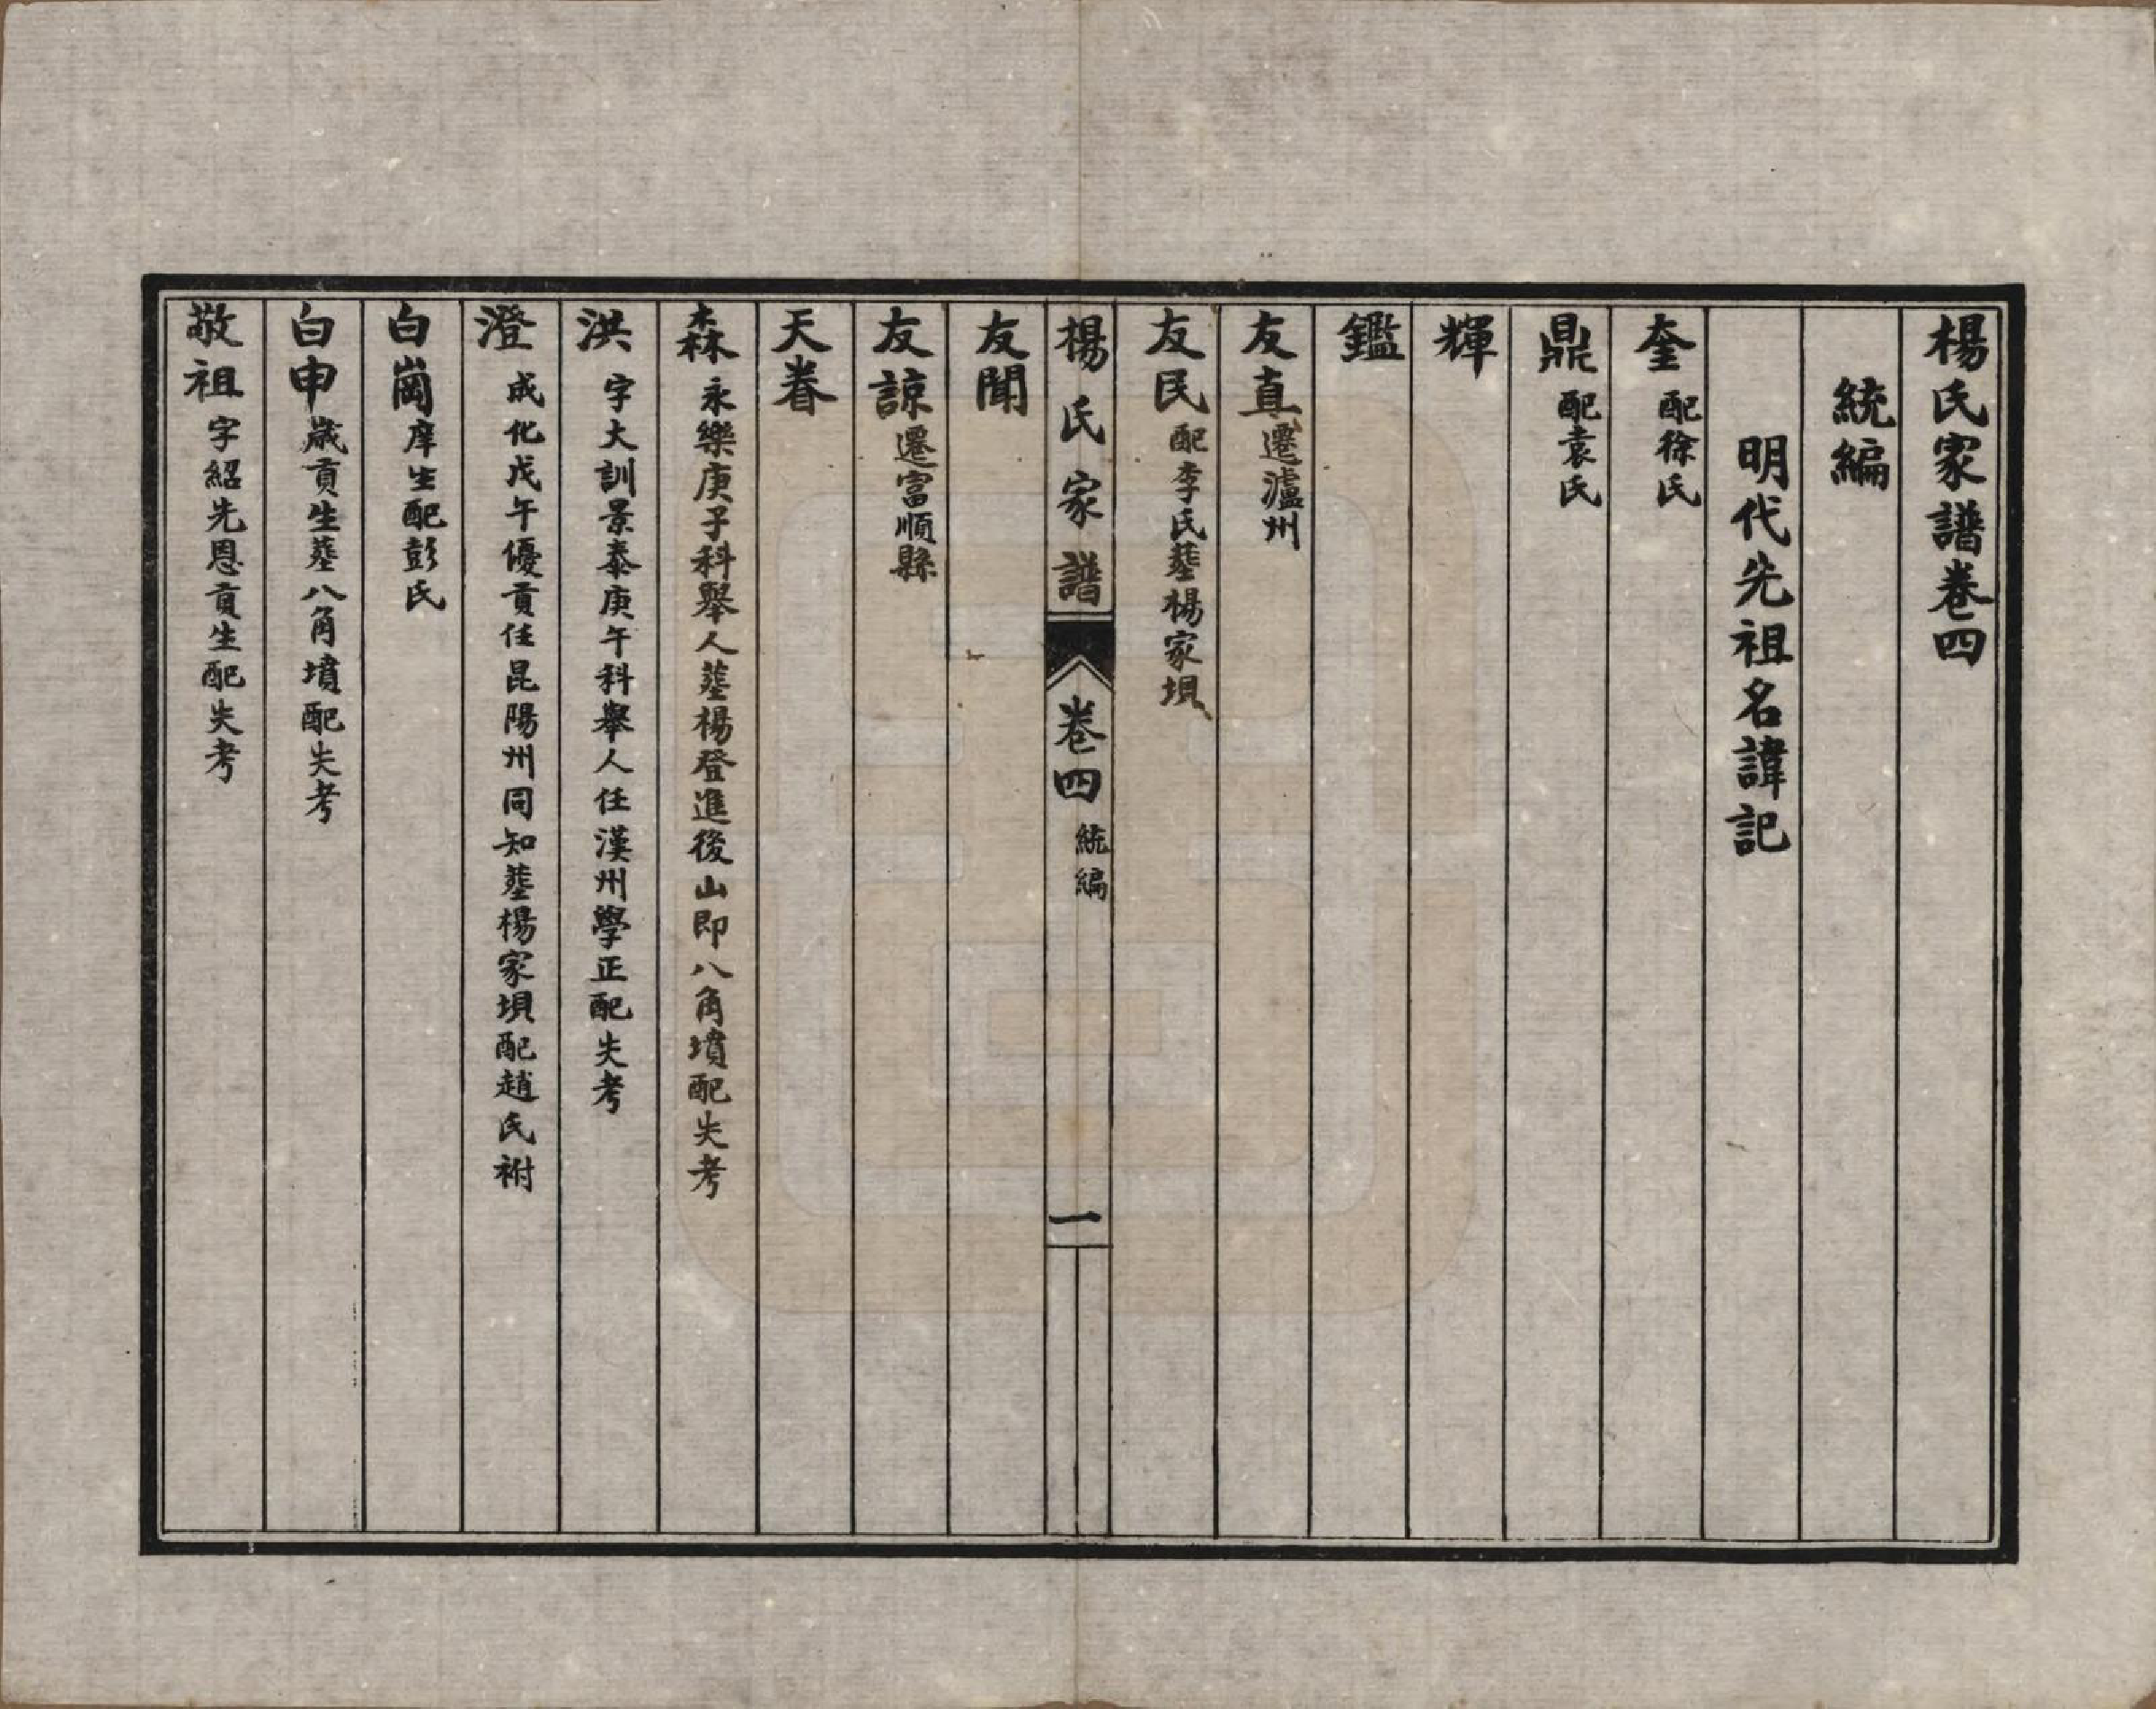 楊氏家譜卷四
統編
明代先祖名諱記
奎 配徐氏
鼎 配袁氏
輝
鑑
友真 遷瀘州
友民 配李氏塟楊家垻
楊氏家譜 卷四 統編 一
友聞
友諒 遷富順縣
天眷
森 永樂庚子科舉人塟楊登進後山即八角墳配失考
洪 字大訓景泰庚午科舉人任漢州學正配失考
澄 成化戊午優貢任昆陽州同知塟楊家垻配趙氏祔
白崗 庠生配彭氏
白申 歲貢生塟八角墳配失考
敬祖 字紹先恩貢生配失考